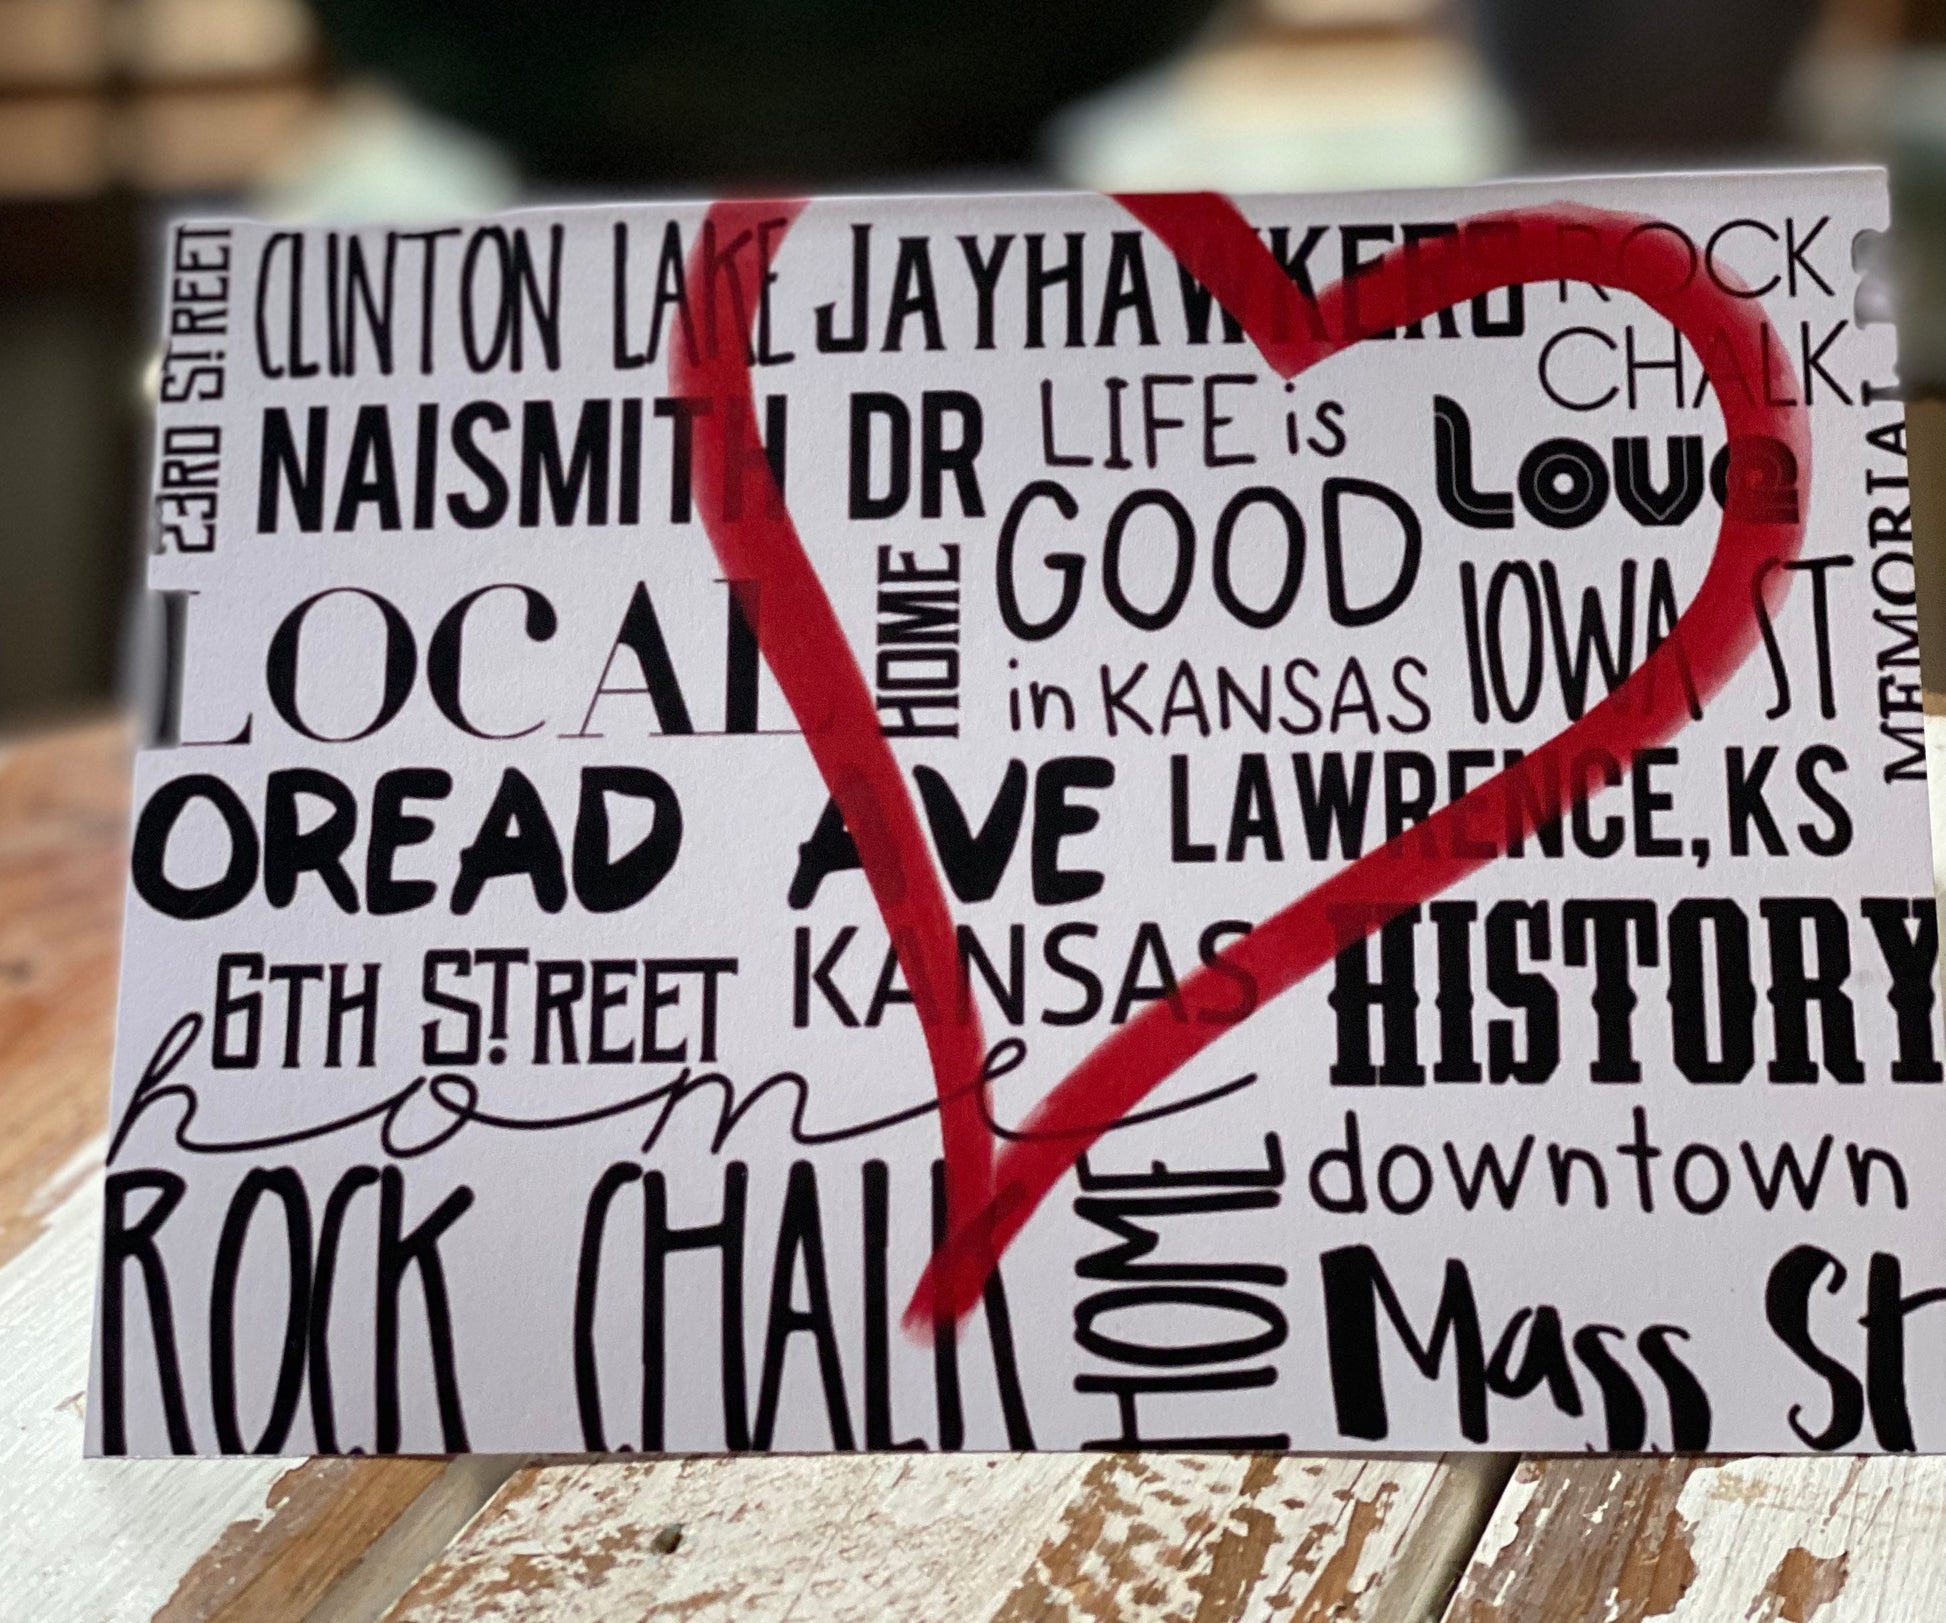 23RD STREET
CLINTON LAKE
JAYHAWKERS
ROCK
CHALK
NAISMITH DR
LIFE is
GOOD
in KANSAS
Love
MEMORIAL
LOCAL
HOME
IOWA ST
OREAD AVE
LAWRENCE, KS
6TH STREET
KANSAS
HISTORY
home
ROCK CHALK
HOME
downtown
Mass St